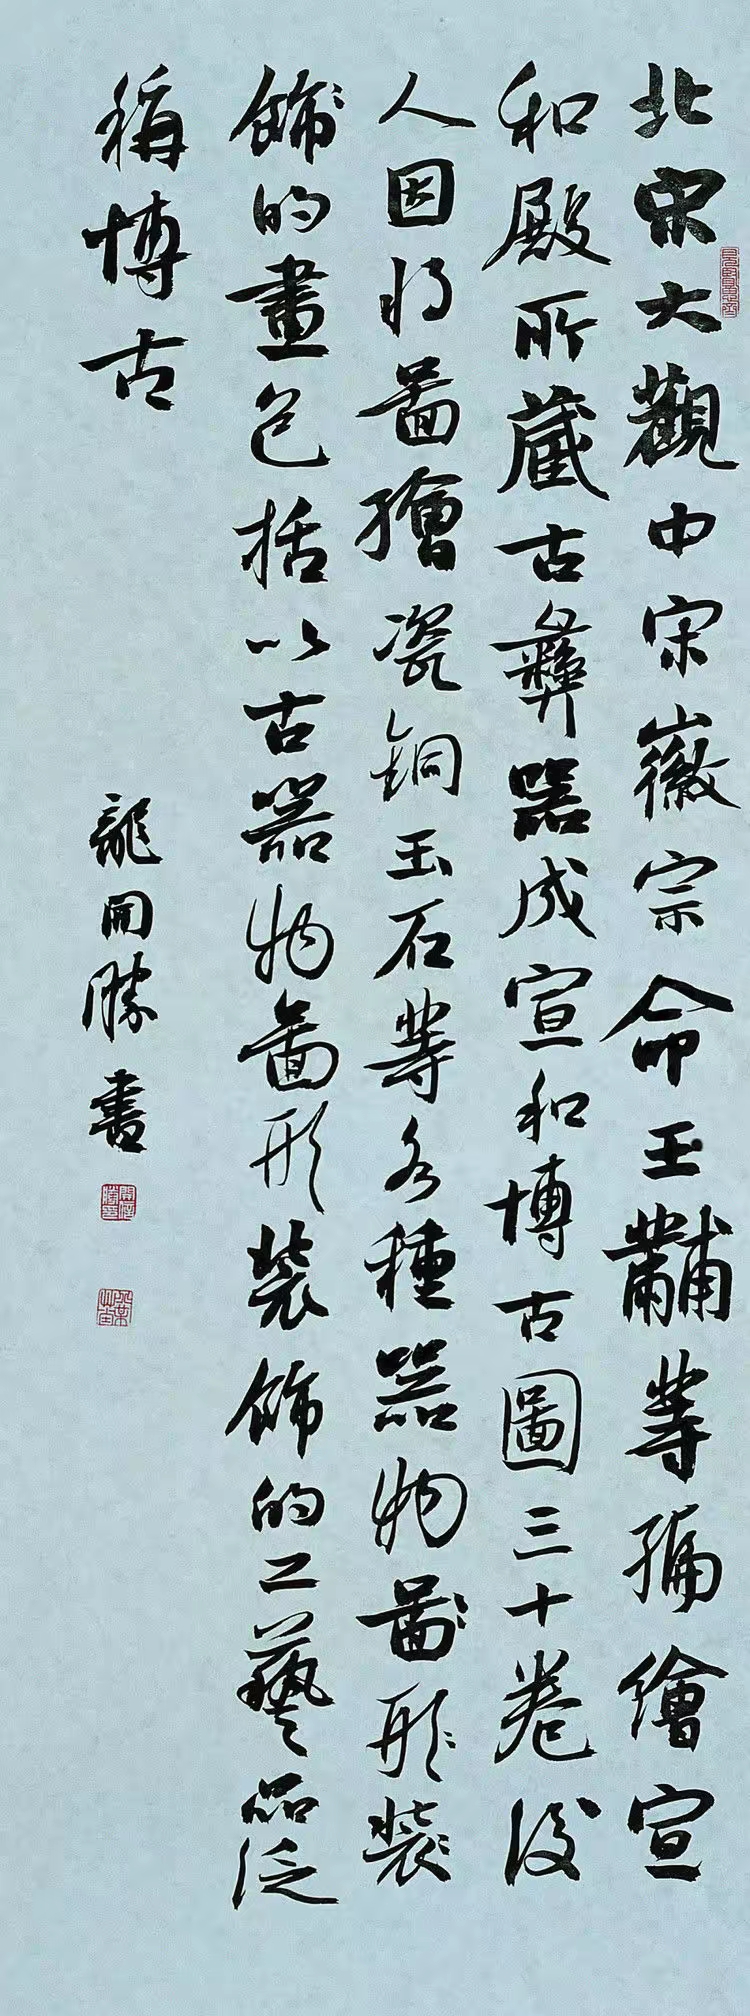 北宋大觀中宋徽宗命王黼等編繪宣
和殿所藏古彝器成宣和博古圖三十卷後
人因將圖繪瓷銅玉石等各種器物圖形裝
飾的畫包括以古器物圖形裝飾的工藝品泛
稱博古
龍開勝書